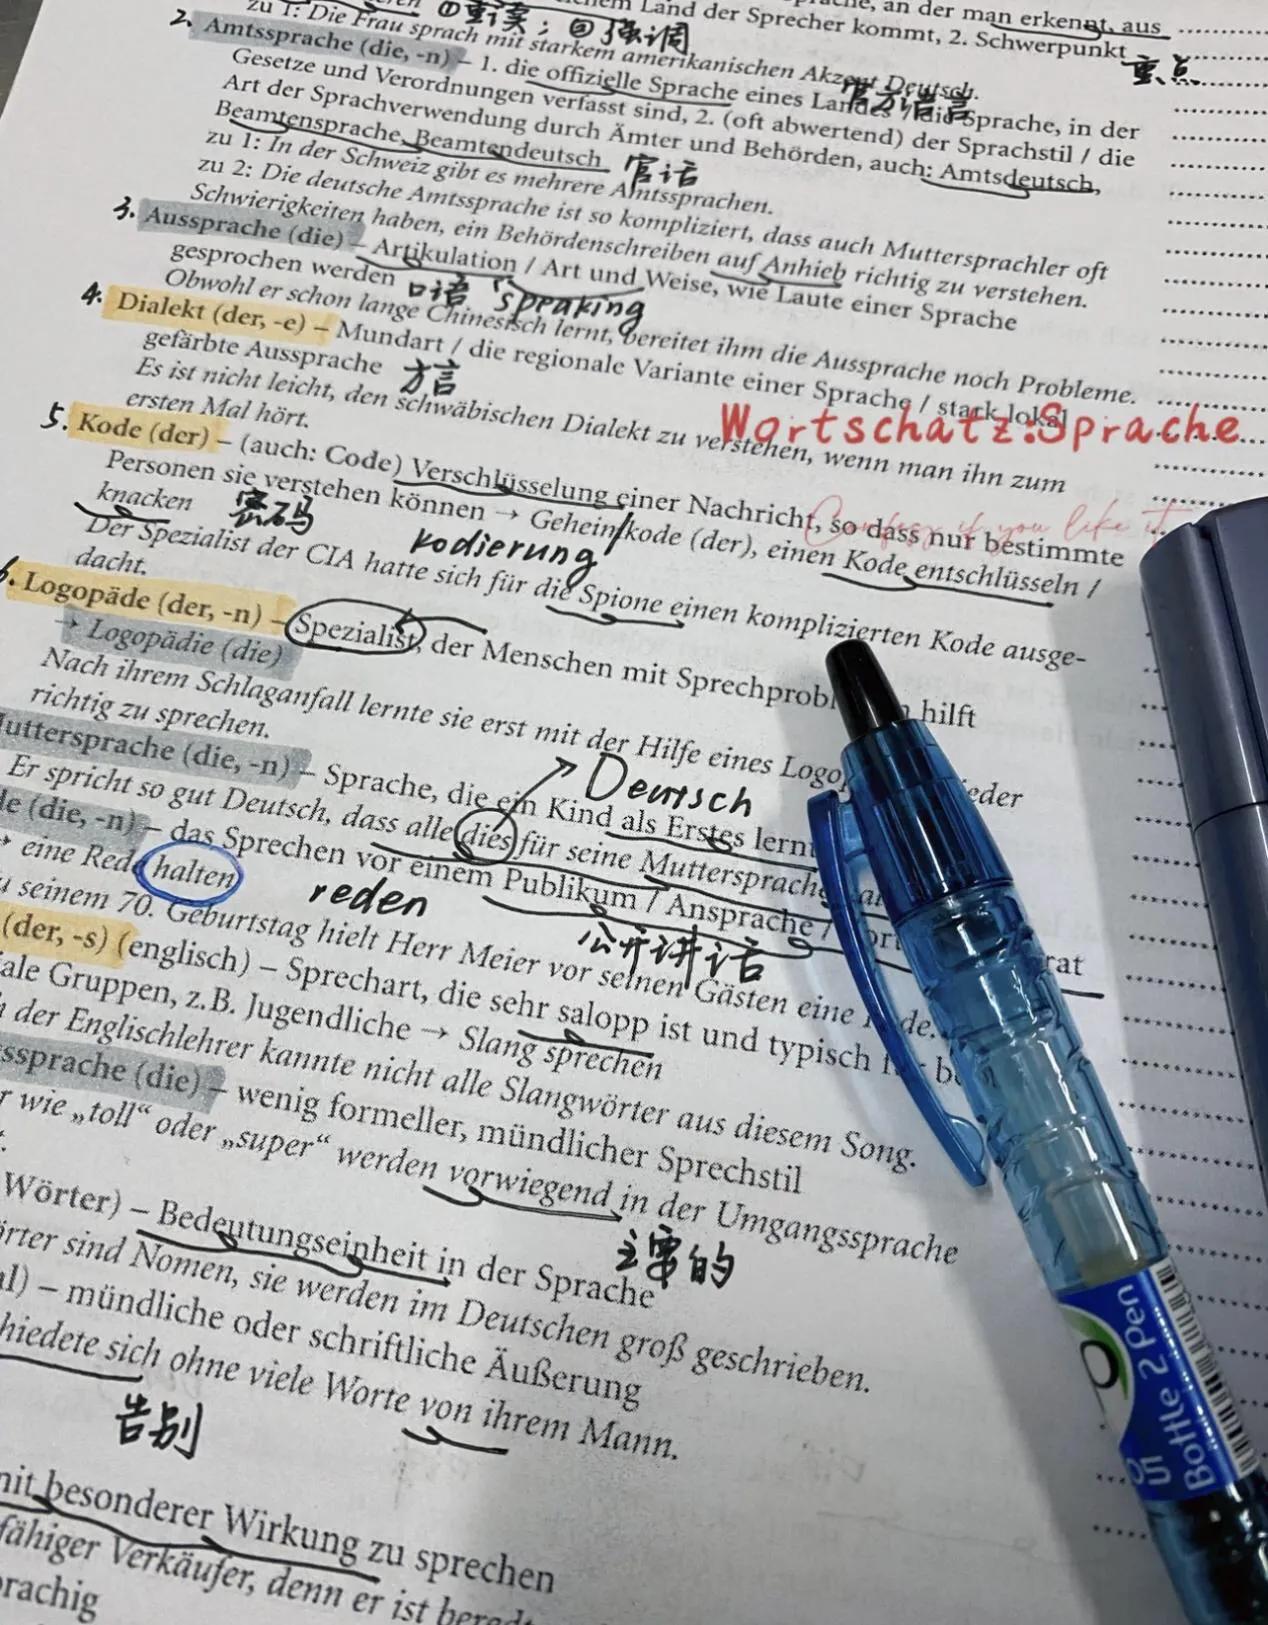 , an der man erkennt, aus
Land der Sprecher kommt, 2. Schwerpunkt
①重读；②强调
重点
zu 1: Die Frau sprach mit starkem amerikanischen Akzent Deutsch.
2. Amtssprache (die, -n) – 1. die offizielle Sprache eines Landes / die Sprache, in der
官方语言
Gesetze und Verordnungen verfasst sind, 2. (oft abwertend) der Sprachstil / die
Art der Sprachverwendung durch Ämter und Behörden, auch: Amtsdeutsch,
Beamtensprache, Beamtendeutsch
官话
zu 1: In der Schweiz gibt es mehrere Amtssprachen.
zu 2: Die deutsche Amtssprache ist so kompliziert, dass auch Muttersprachler oft
Schwierigkeiten haben, ein Behördenschreiben auf Anhieb richtig zu verstehen.
3. Aussprache (die) – Artikulation / Art und Weise, wie Laute einer Sprache
gesprochen werden
口语 "speaking
Obwohl er schon lange Chinesisch lernt, bereitet ihm die Aussprache noch Probleme.
4. Dialekt (der, -e) – Mundart / die regionale Variante einer Sprache / stark lokal
gefärbte Aussprache
方言
Wortschatz:Sprache
Es ist nicht leicht, den schwäbischen Dialekt zu verstehen, wenn man ihn zum
ersten Mal hört.
5. Kode (der) – (auch: Code) Verschlüsselung einer Nachricht, so dass nur bestimmte
if you like it
Personen sie verstehen können → Geheimkode (der), einen Kode entschlüsseln /
knacken
密码
kodierung
Der Spezialist der CIA hatte sich für die Spione einen komplizierten Kode ausge-
dacht.
6. Logopäde (der, -n) – Spezialist, der Menschen mit Sprechprobl hilft
→ Logopädie (die)
Nach ihrem Schlaganfall lernte sie erst mit der Hilfe eines Logo ieder
richtig zu sprechen.
Deutsch
uttersprache (die, -n) – Sprache, die ein Kind als Erstes lernt
Er spricht so gut Deutsch, dass alle dies für seine Muttersprache
de (die, -n) – das Sprechen vor einem Publikum / Ansprache / ort
rat
→ eine Rede halten
reden
公开讲话
u seinem 70. Geburtstag hielt Herr Meier vor seinen Gästen eine de.
(der, -s) (englisch) – Sprechart, die sehr salopp ist und typisch b
iale Gruppen, z.B. Jugendliche → Slang sprechen
der Englischlehrer kannte nicht alle Slangwörter aus diesem Song.
ssprache (die) – wenig formeller, mündlicher Sprechstil
r wie „toll“ oder „super“ werden vorwiegend in der Umgangssprache
主要的
Wörter) – Bedeutungseinheit in der Sprache
örter sind Nomen, sie werden im Deutschen groß geschrieben.
al) – mündliche oder schriftliche Äußerung
hiedete sich ohne viele Worte von ihrem Mann.
告别
mit besonderer Wirkung zu sprechen
fähiger Verkäufer, denn er ist bered
prachig
Bottle 2 Pen